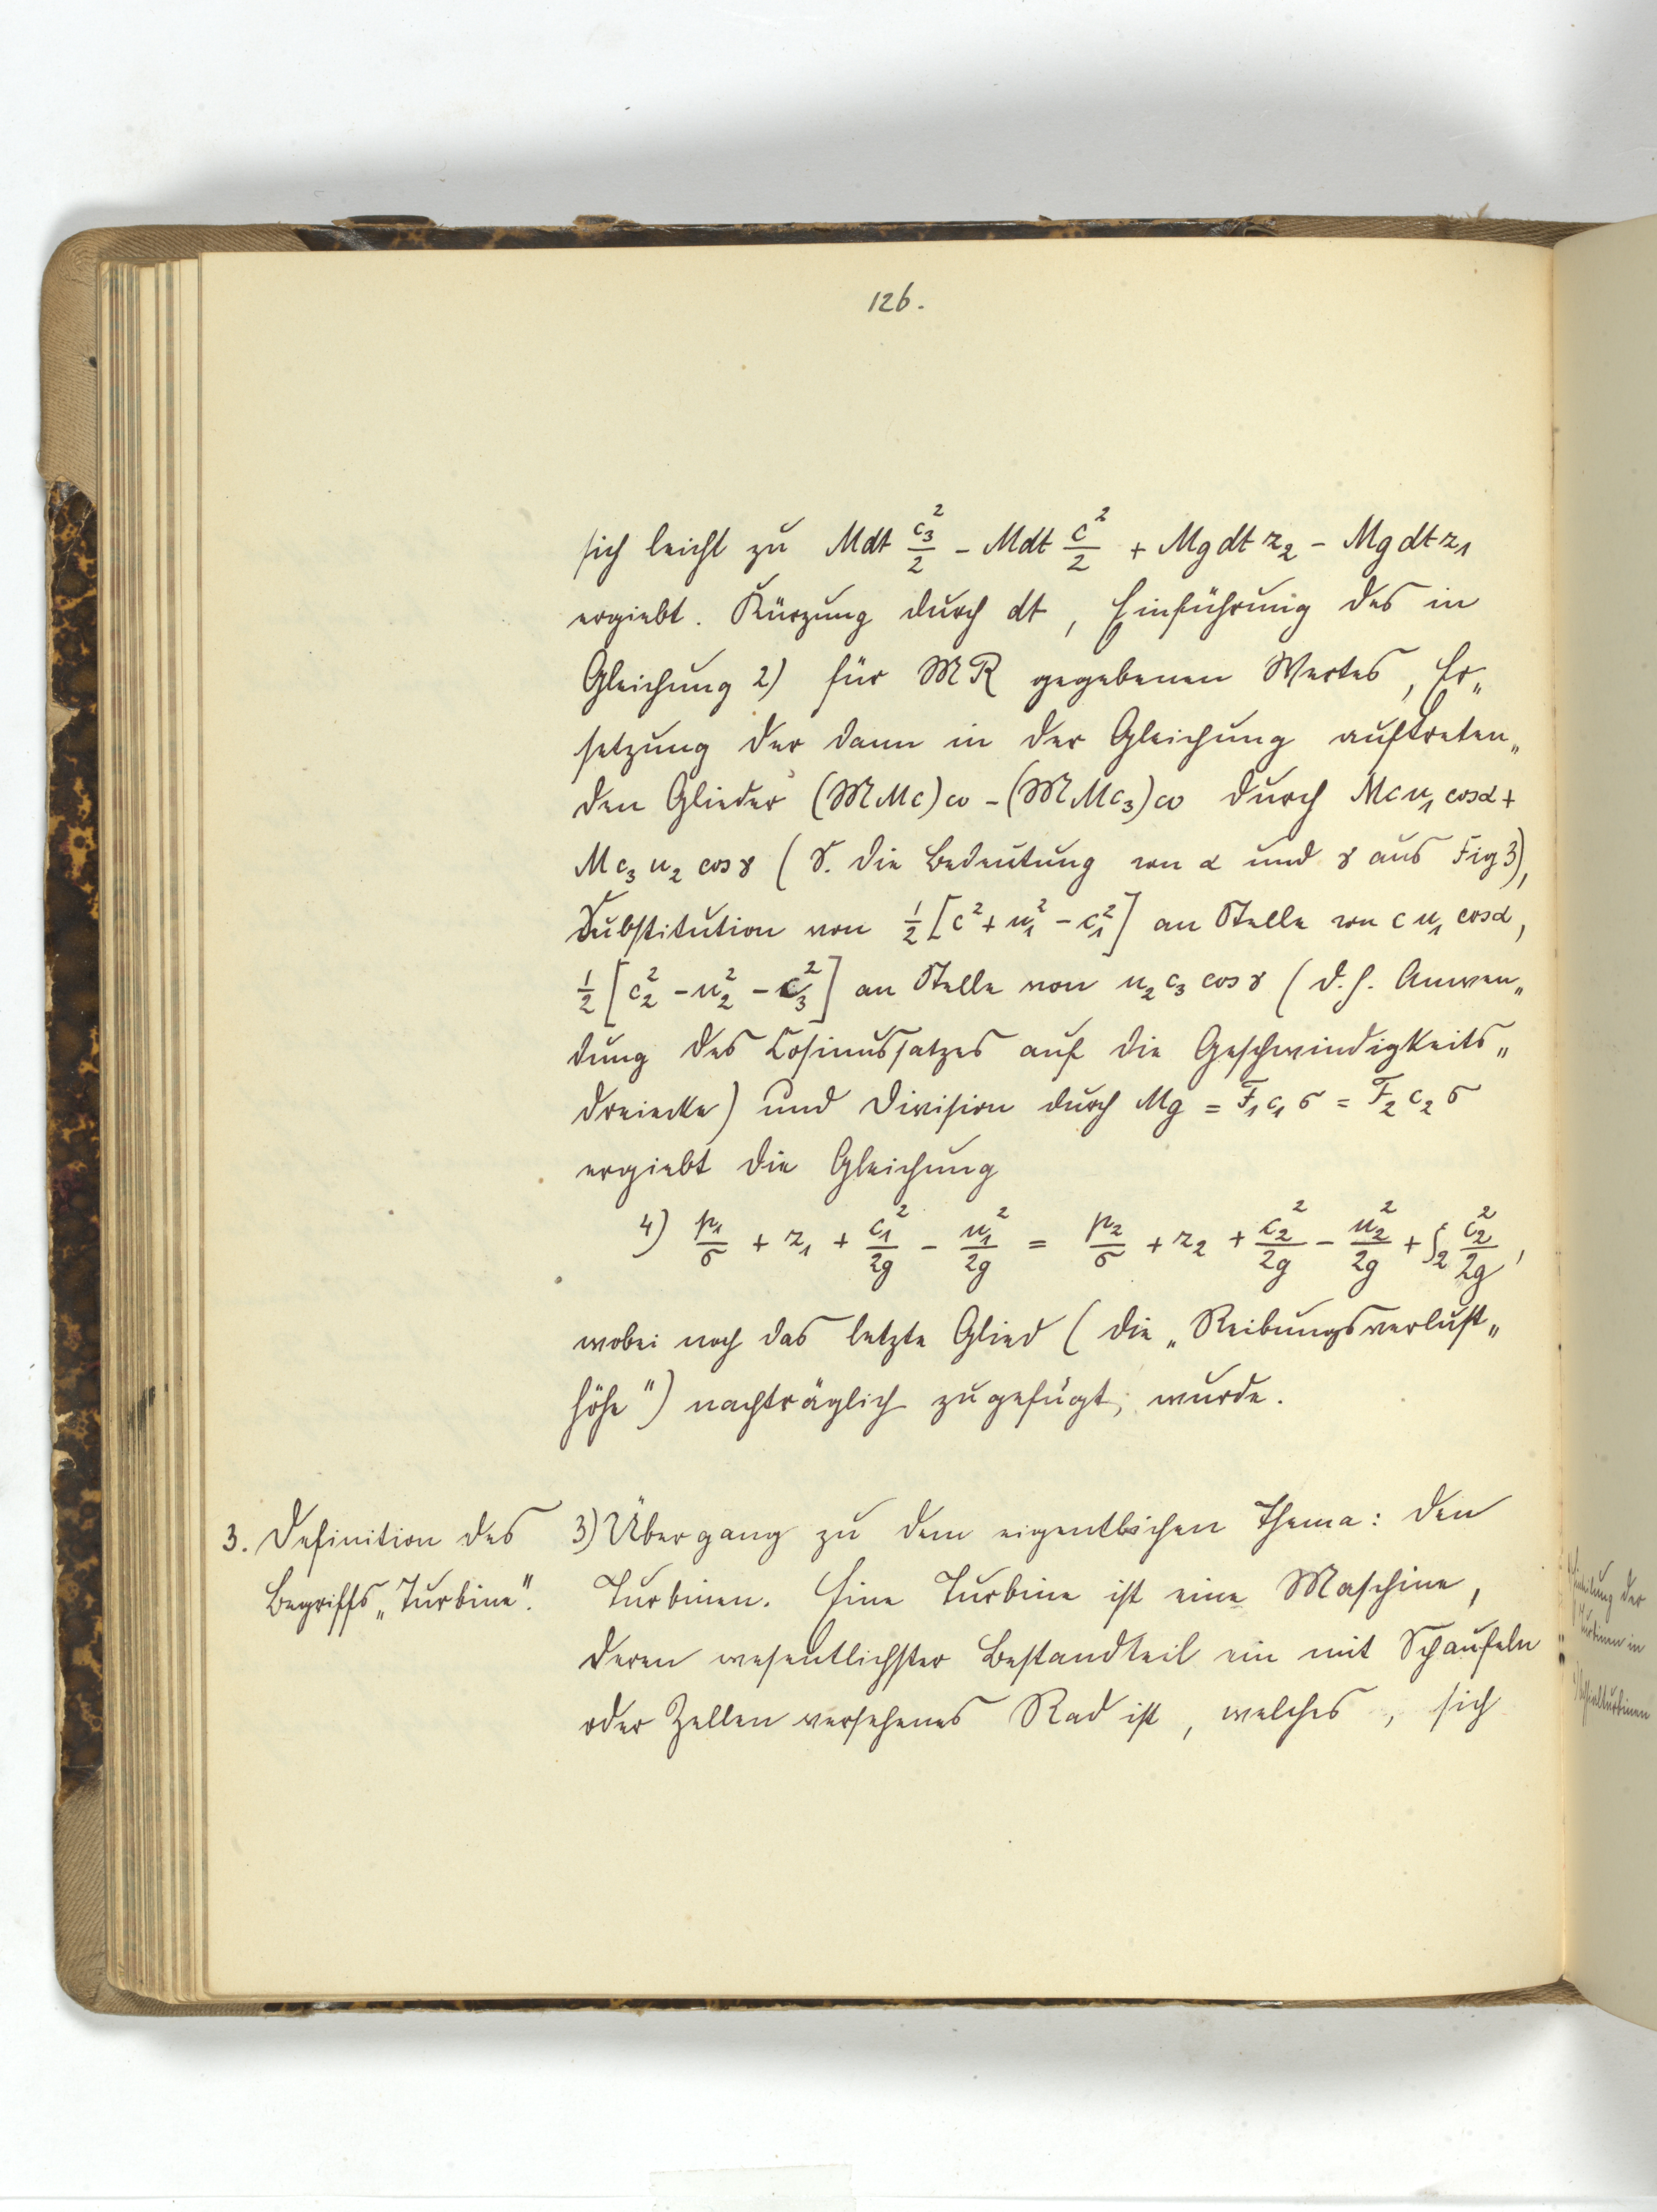 126.
sich leicht zu Mdt c₃²/2 - Mdt c²/2 + Mgdt z₂ - Mgdt z₁
ergiebt. Kürzung durch dt, Einführung des in
Gleichung 2) für 𝔐R gegebenen Wertes, Er„
setzung der dann in der Gleichung auftreten„
den Glieder (𝔐Mc)ω - (𝔐Mc₃)ω durch Mcu₁ cosα +
Mc₃u₂ cosγ (S. die Bedeutung von α und γ aus Fig 3),
Substitution von ½[c² + u₁² - c₁²] an Stelle von cu₁ cosα,
½[c₂² - u₂² - c₃²] an Stelle von u₂c₃ cosγ (d. h. Anwen„
dung des Cosinussatzes auf die Geschwindigkeits„
dreiecke) und Division durch Mg = F₁c₁σ = F₂c₂σ
ergiebt die Gleichung
4) p₁/σ + z₁ + c₁²/2g - u₁²/2g = p₂/σ + z₂ + c₂²/2g - u₂²/2g + ζ₂ c₂²/2g,
wobei noch das letzte Glied (die „Reibungsverlust„
höhe") nachträglich zugefügt, wurde.
3. Definition des
Begriffs „Turbine".
3) Übergang zu dem eigentlichen Thema: den
Turbinen. Eine Turbine ist eine Maschine,
deren wesentlichster Bestandteil ein mit Schaufeln
oder Zellen versehenes Rad ist, welches, sich
der
Turbinen in